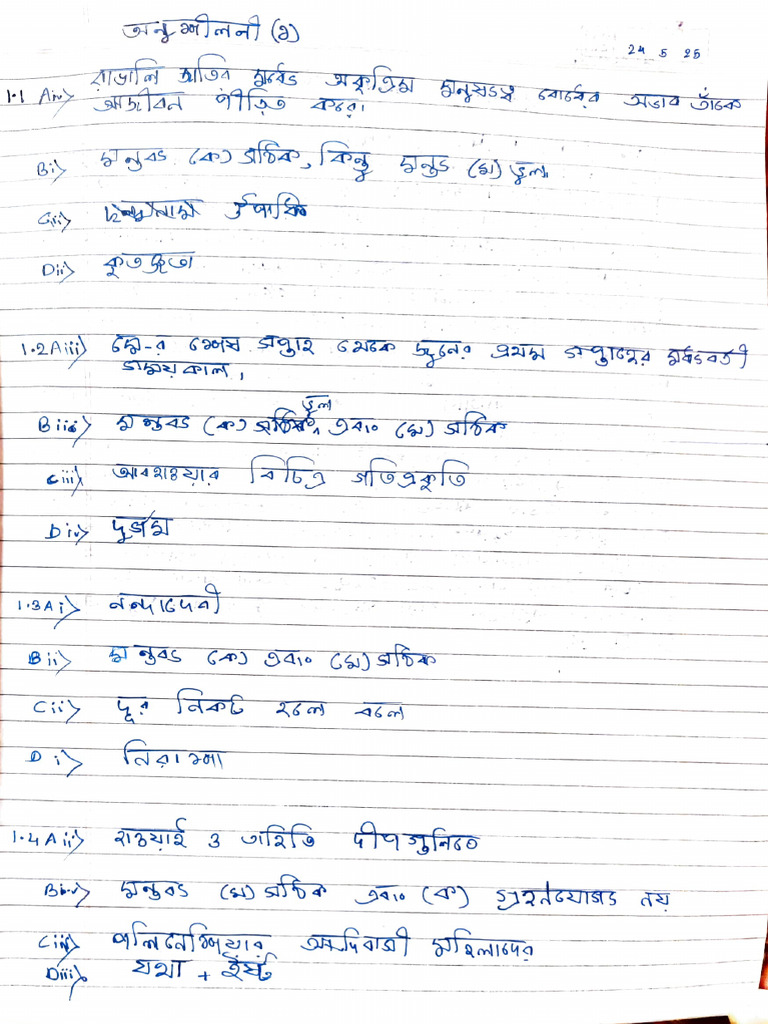 অনুশীলনী (১)
24 5 25
1.1 Aiv> বাঙালি জাতির মধ্যে অকৃত্রিম মনুষ্যত্ব বোধের অভাব তাঁকে
আজীবন পীড়িত করে।
Bi> মন্তব্য (ক) সঠিক, কিন্তু মন্তব্য (খ) ভুল
Cii> উপাধি
Dii> কৃতজ্ঞতা
1.2 Aiii> মে-র শেষ সপ্তাহ থেকে জুনের প্রথম সপ্তাহের মধ্যবর্তী
সময়কাল,
ভুল
Biii> মন্তব্য (ক) এবং (খ) সঠিক
Ciii> আবহাওয়ার বিচিত্র গতিপ্রকৃতি
Div> দুর্গম
1.3 Ai> নন্দাদেবী
Bii> মন্তব্য (ক) এবং (খ) সঠিক
Cii> দূর নিকট হলে বলে
Di> নিরাশা
1.4 Aii> হাওয়াই ও তাহিতি দ্বীপগুলিতে
B মন্তব্য (খ) সঠিক এবং (ক) গ্রহণযোগ্য নয়
C পলিনেশিয়ার আদিবাসী মহিলাদের
Diii> যথা + ইষ্ট